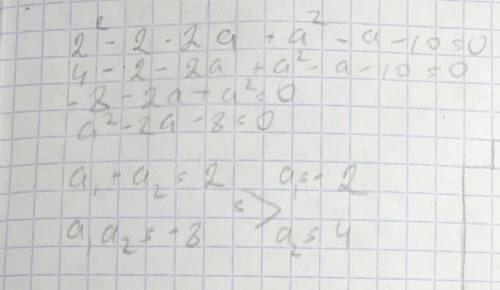 2² - 2 - 2a + a² - a - 10 = 0
4 - 2 - 2a + a² - a - 10 = 0
-8 - 2a + a² = 0
a² - 2a - 8 = 0
a₁ + a₂ = 2 a₁ = -2
a₁ a₂ = -8 => a₂ = 4